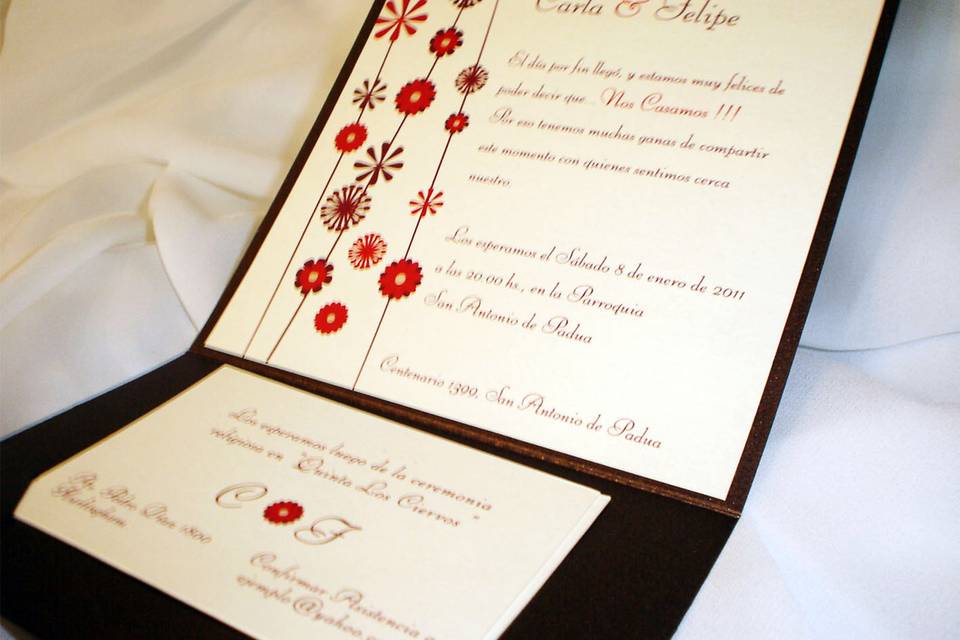 Carla & Felipe
El día por fin llegó, y estamos muy felices de
poder decir que... Nos Casamos !!!
Por eso tenemos muchas ganas de compartir
este momento con quienes sentimos cerca
nuestro.
Los esperamos el Sábado 8 de enero de 2011
a las 20.00 hs., en la Parroquia
San Antonio de Padua
Centenario 1300, San Antonio de Padua
Los esperamos luego de la ceremonia
religiosa en "Quinta Los Cierros"
C F
Pte. Perón Diaz 1800
Confirmar Asistencia a
ejemplo@yahoo.co